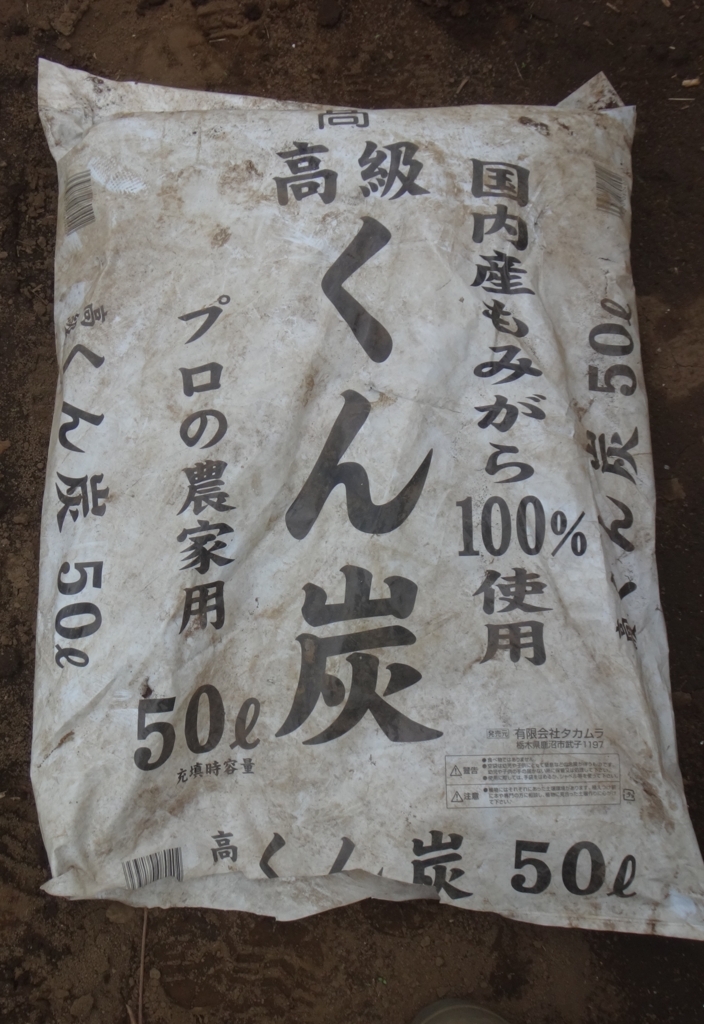 高
高級
くん炭
国内産もみがら
100%使用
プロの農家用
50ℓ
充填時容量
高級くん炭 50ℓ
くん炭 50ℓ
有限会社タカムラ
栃木県鹿沼市武子1197
警告
注意
高 くん炭 50ℓ